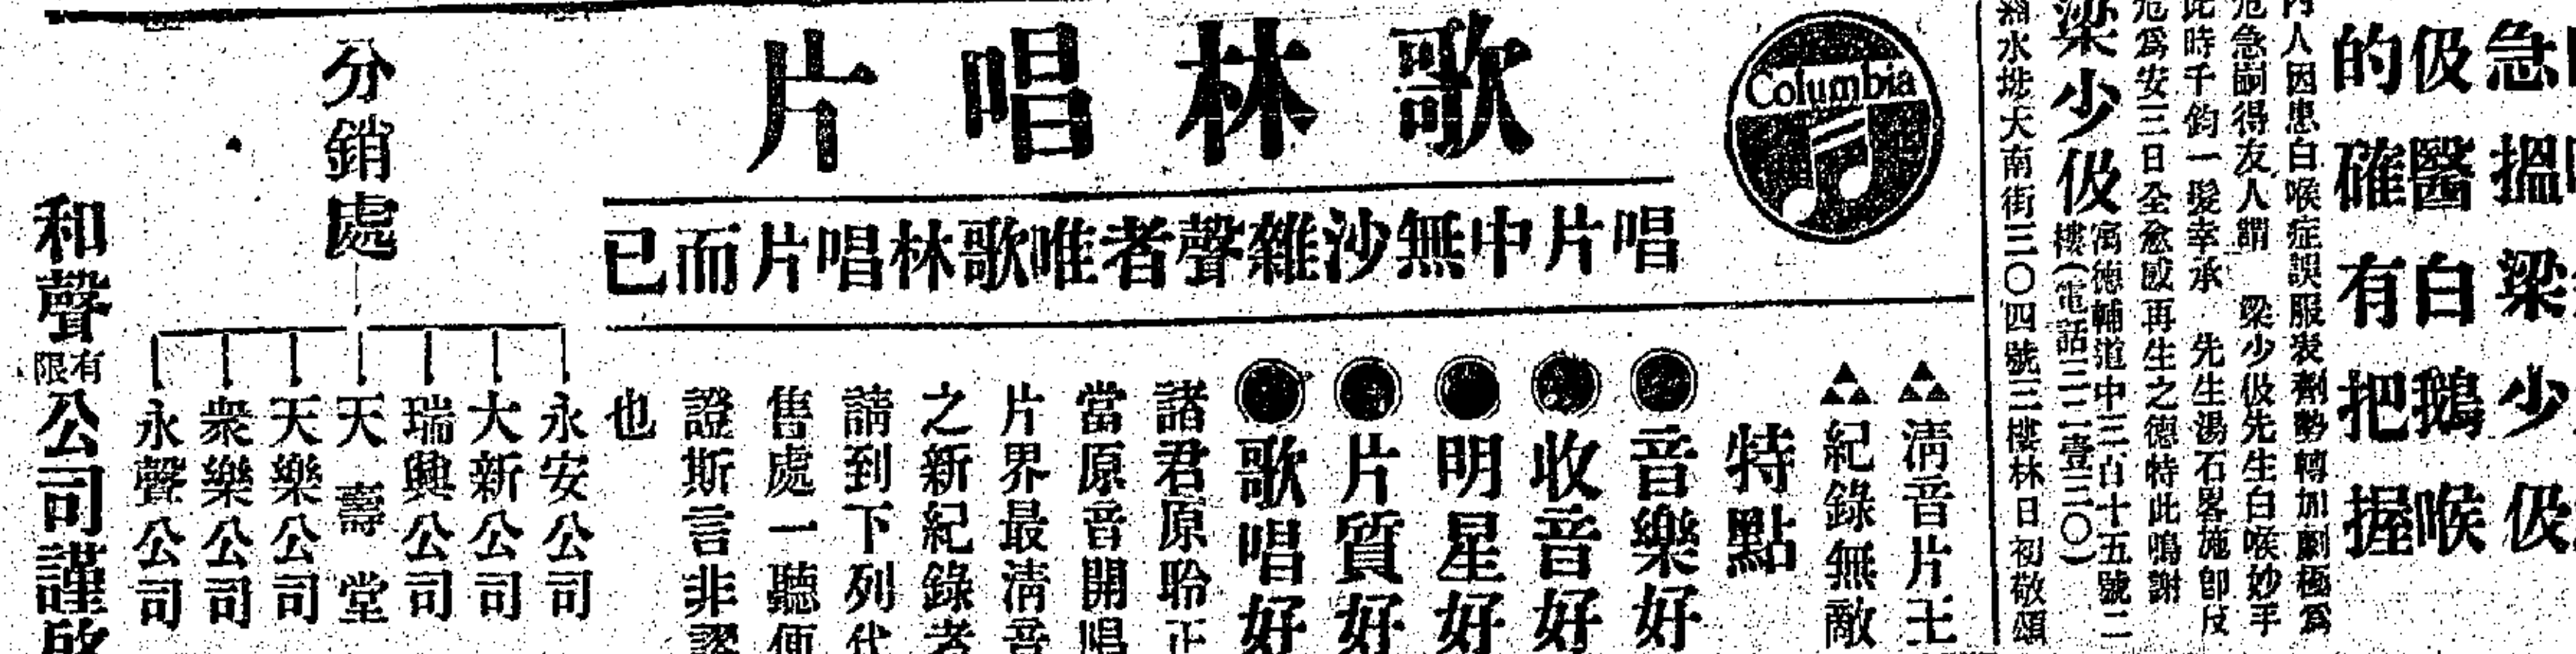 急搵梁少伋
伋醫白鵝喉
的確有把握
人因患白喉症誤服表劑勢轉加劇極爲
危急嗣得友人謂 梁少伋先生白喉妙手
此時千鈞一髮幸承 先生湯石畧施卽反
危爲安三日全愈感再生之德特此鳴謝
梁少伋
寓德輔道中三百十五號二
樓(電話二二壹三〇)
水坺大南街三〇四號三樓林日初敬頌
Columbia
歌林唱片
唱片中無沙雜聲者唯歌林唱片而已
清音片王
紀錄無敵
特點
音樂好
收音好
明星好
片質好
歌唱好
諸君原聆正
當原音開唱
片界最清音
之新紀錄者
請到下列代
售處一聽便
證斯言非謬
也
分銷處
永安公司
大新公司
瑞興公司
天壽堂
天樂公司
衆樂公司
永聲公司
和聲有限公司謹啟